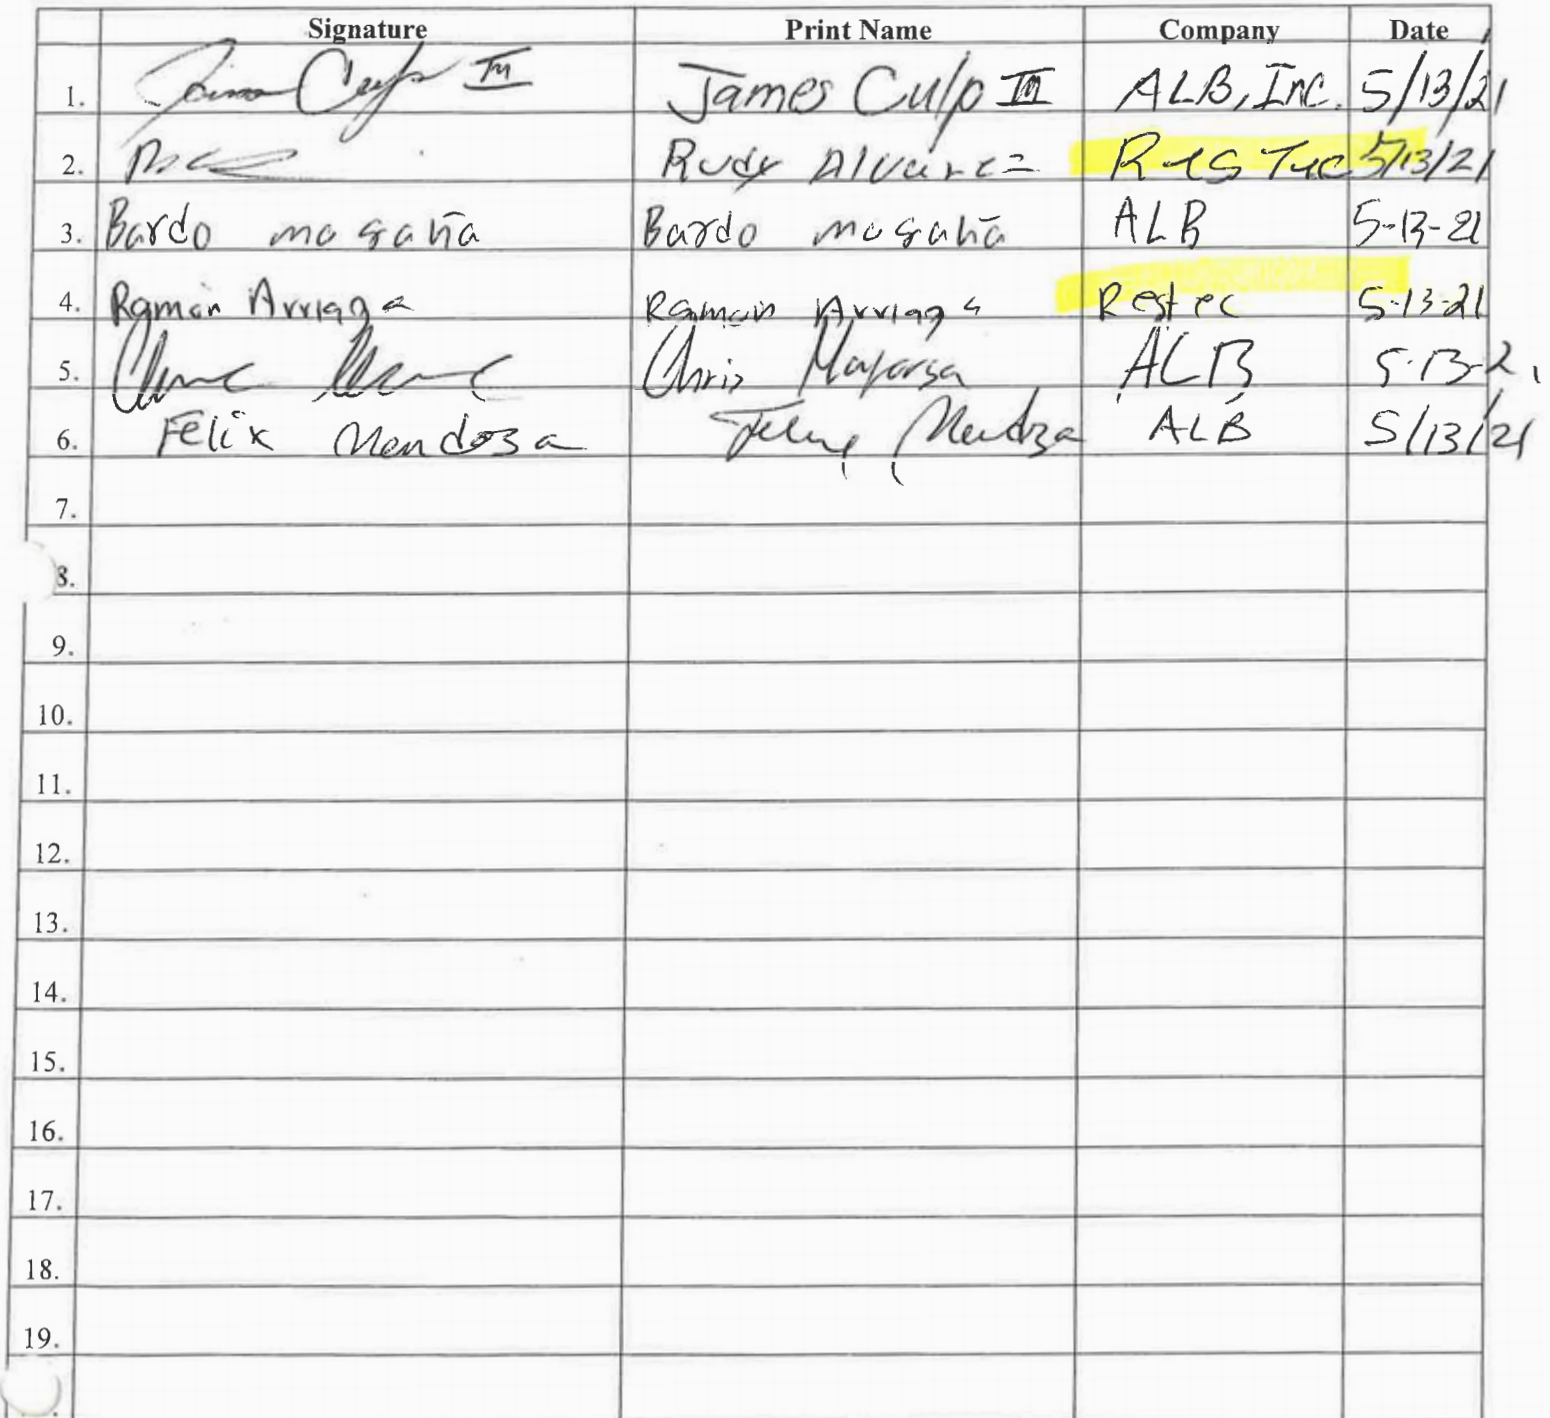 Signature Print Name Company Date
1. James Culp III James Culp III ALB, Inc. 5/13/21
2. Rudy Alvarez ResTec 5/13/21
3. Bardo magaña Bardo magaña ALB 5-13-21
4. Ramon Arriaga Ramon Arriaga Restec 5-13-21
5. Chris ALB 5-13-21
6. Felix Mendoza Mendoza ALB 5/13/21
7.
8.
9.
10.
11.
12.
13.
14.
15.
16.
17.
18.
19.